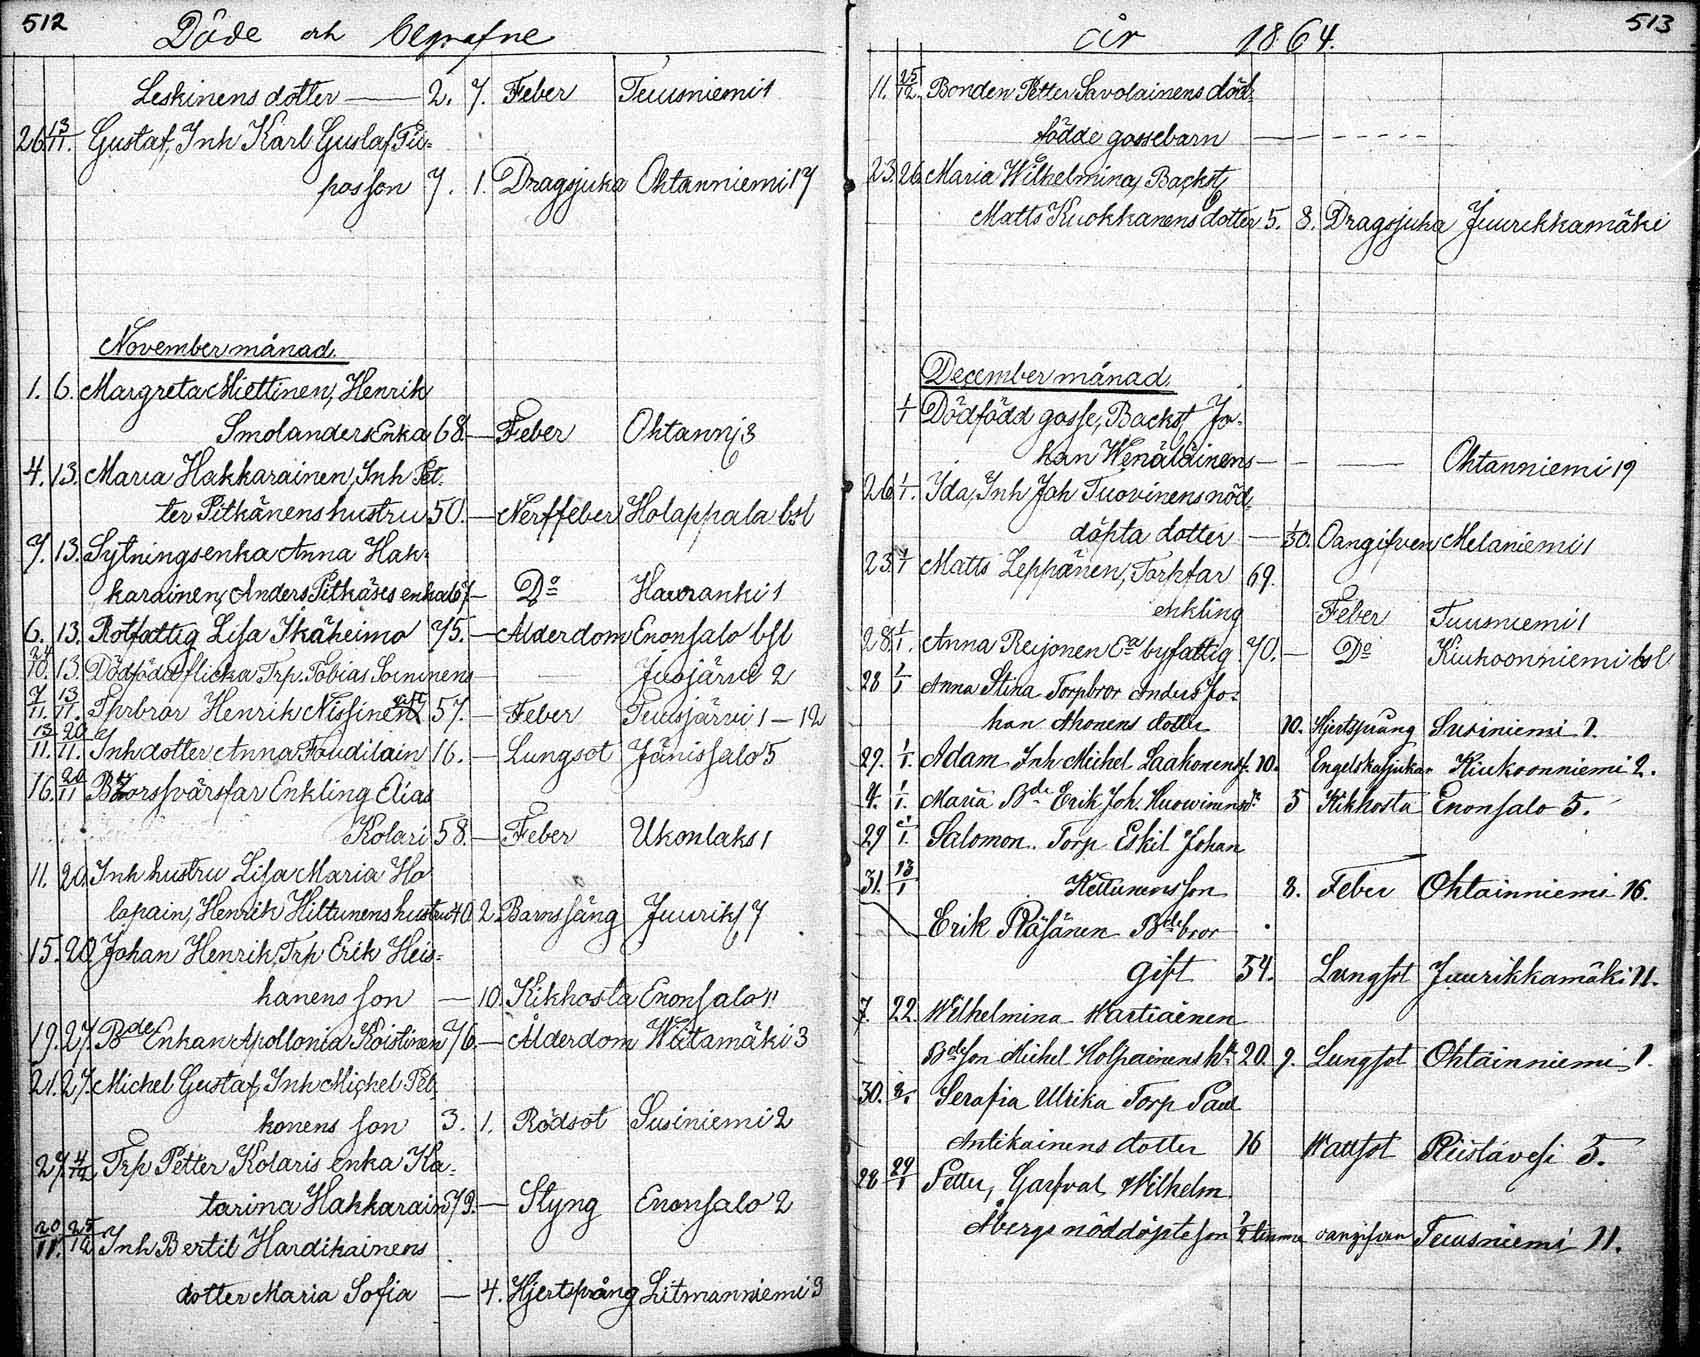 512 Döde och begrafne
Leskinens dotter — 2. 7. Feber Tuusniemi 1
26. 13/11. Gustaf, Inh Karl Gustaf Pii-
pos son 7. 1. Dragsjuka Ohtanniemi 17
November månad.
1. 6. Margreta Miettinen, Henrik
Smolanders Enka 68. — Feber Ohtannj 3
4. 13. Maria Hakkarainen, Inh Pet-
ter Pitkänens hustru 50. — Nerffeber Holappala bol
7. 13. Sytningsenka Anna Hak-
karainen, Anders Pitkäses enka 67 — Do Hauranki 1
6. 13. Rotfattig Lisa Ikäheimo 75. — Ålderdom Enonsalo bsl
24/10. 13. Dödfödd flicka Trp. Tobias Soininens — Juojärvi 2
7/11. 13/11. Tprbror Henrik Nissinen gift 57. — Feber Tuusjärvi 1 — 12
13/11. 20/11. Inh dotter Anna Toudilain 16. — Lungsot Jänissalo 5
16. 20/11 Borsvärsfar Enkling Elias
Kolari 58. — Feber Ukonlaks 1
11. 20. Inh hustru Lisa Maria Ho
lapain, Henrik Hiltunens hustru 40. 2. Barnssäng Juurik, 7
15. 20. Johan Henrik, Trp Erik Heis-
kanens son — 10. Kikhosta Enonsalo 11
19. 27. Bde Enkan Apollonia Koistinen 76. — Ålderdom Witamäki 3
21. 27. Michel Gustaf, Inh Michel Pek-
konens son 3. 1. Rödsot Susiniemi 2
27. 4/12 Trp Petter Kolaris enka Ka-
tarina Hakkarain 579. — Styng Enonsalo 2
20/11. 25/12 Inh Bertil Hardikainens
dotter Maria Sofia — 4. Hjertsprång Litmanniemi 3
år 1864. 513
11. 25/12. Bonden Petter Savolainens död-
födde gossebarn — — — —
23. 26. Maria Wilhelmina, Backst,
Matts Kuokkanens dotter 5. 8. Dragsjuka Juurikkamäki
December månad.
1/1 Dödfödd gosse, Backst, Jo-
han Wenäläinens — — — Ohtanniemi 19
26 1/1. Ida, Inh Joh Tuovinens nöd-
döpta dotter — 1/30. Oangifven Melaniemi 1
23. 1/1 Matts Leppänen, Torpfar 69.
enkling Feber Tuusniemi 1
28. 1/1. Anna Reijonen Ea byfattig 70. — Do Kiukoonniemi bol
28 1/1 Anna Stina Torpbror Anders Jo-
han Ahonens dotter 10. Hjertsprung Susiniemi 1.
29. 1/1. Adam Inh Michel Laakonens s. 10. Engelska sjukan Kiukoonniemi 2.
4. 1/1. Maria Bde Erik Joh. Huowinens dr 5 Kikhosta Enonsalo 5.
29 1/1. Salomon. Torp Eskil Johan
31. 13/1 Kettunens son 8. Feber Ohtainniemi 16.
Erik Räsänen Bde bror
Gift 34. Lungsot Juurikkamäki 11.
7. 22. Wilhelmina Wartiainen
Bdeson Michel Holpainens h. 20. 9. Lungsot Ohtainniemi 1.
30. 8/1. Serafia Ulrika Torp Paul
Antikainens dotter 16 Wattsot Riistavesi 5.
28 29/1 Petter, Garfval Wilhelm
Åbergs nöddöpte son 1/2 timme oangifven Tuusniemi 11.